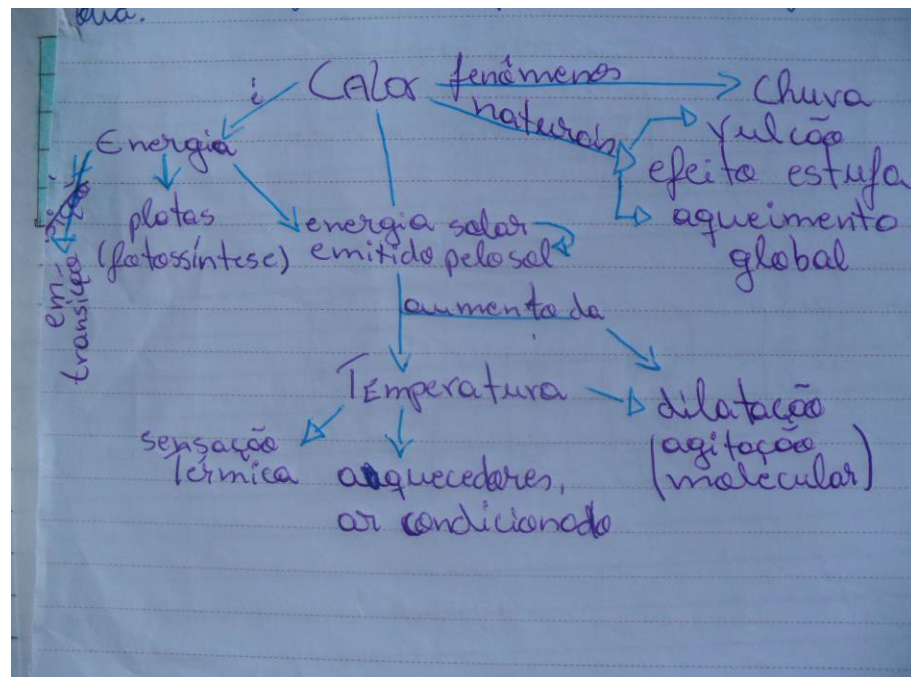 dia.
Calor fenômenos
naturais
Chuva
Vulcão
efeito estufa
aqueimento
global
é
Energia
em
transição
plotas
(fotossíntese)
energia solar
emitido pelo sol
aumento da
Temperatura
dilatação
(agitação
molecular)
sensação
Térmica
aquecedores,
ar condicionado